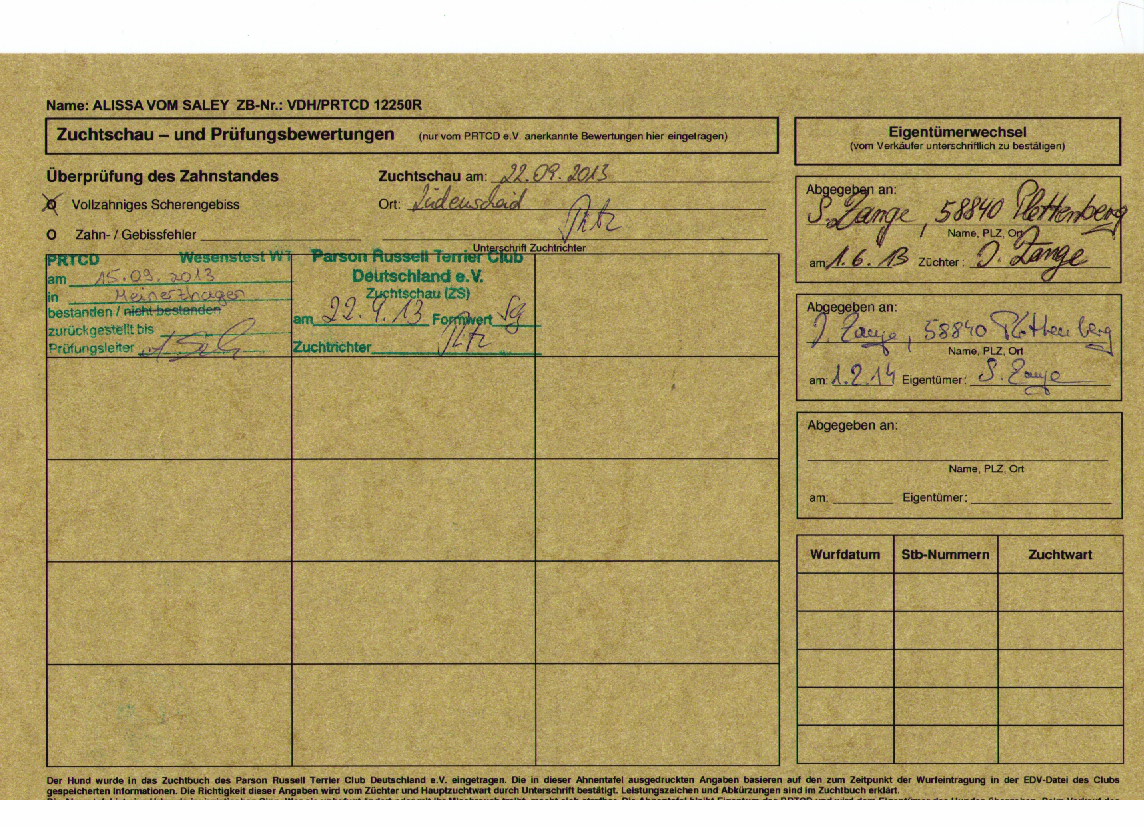 Name: ALISSA VOM SALEY ZB-Nr.: VDH/PRTCD 12250R
Zuchtschau – und Prüfungsbewertungen (nur vom PRTCD e.V. anerkannte Bewertungen hier eingetragen)
Überprüfung des Zahnstandes
Zuchtschau am: 22.09.2013
O Vollzahniges Scherengebiss
Ort: Lüdenscheid
O Zahn- / Gebissfehler
Unterschrift Zuchtrichter
PRTCD Wesenstest WT
am 15.09.2013
in Meinerzhagen
bestanden / nicht bestanden
zurückgestellt bis
Prüfungsleiter
Parson Russell Terrier Club
Deutschland e.V.
Zuchtschau (ZS)
am 22.9.13 Formwert Sg
Zuchtrichter
Eigentümerwechsel
(vom Verkäufer unterschriftlich zu bestätigen)
Abgegeben an:
S. Zange, 58840 Plettenberg
Name, PLZ, Ort
am 1.6.13 Züchter: J. Zange
Abgegeben an:
J. Zange, 58840 Plettenberg
Name, PLZ, Ort
am: 1.2.14 Eigentümer: S. Zange
Abgegeben an:
Name, PLZ, Ort
am: Eigentümer:
Wurfdatum Stb-Nummern Zuchtwart
Der Hund wurde in das Zuchtbuch des Parson Russell Terrier Club Deutschland e.V. eingetragen. Die in dieser Ahnentafel ausgedruckten Angaben basieren auf den zum Zeitpunkt der Wurfeintragung in der EDV-Datei des Clubs
gespeicherten Informationen. Die Richtigkeit dieser Angaben wird vom Züchter und Hauptzuchtwart durch Unterschrift bestätigt. Leistungszeichen und Abkürzungen sind im Zuchtbuch erklärt.